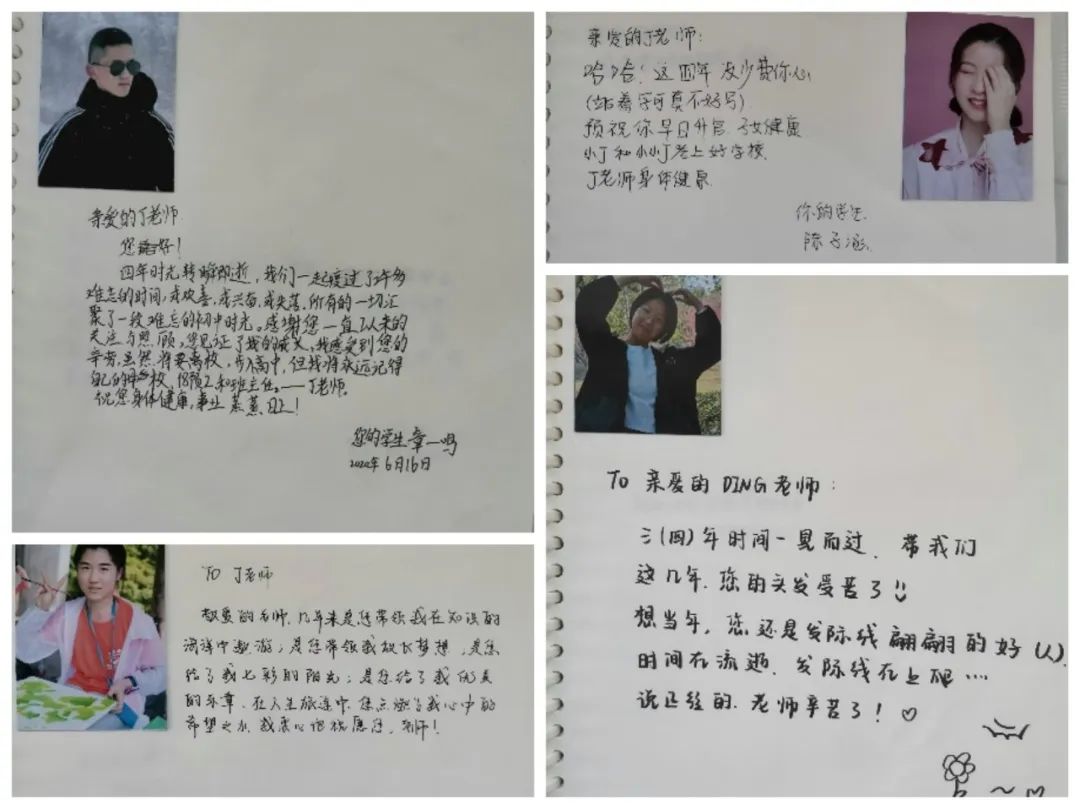 亲爱的J老师
您好！
四年时光转瞬即逝，我们一起度过了许多
难忘的时间，或欢喜，或兴奋，或失落，所有的一切汇
聚了一段难忘的初中时光。感谢您一直以来的
关注与照顾，您见证了我的成长，我感受到您的
辛劳，虽然将要离校，步入高中，但我将永远记得
自己的母校，18预2和班主任。——J老师。
祝您身体健康，事业蒸蒸日上！
您的学生章一鸣
2020年6月16日
亲爱的J老师：
哈哈！这四年没少费你心
(站着字可真不好写)
预祝你早日升官，子女健康
小J和小小J考上好学校
J老师身体健康
你的学生
陈子涵
TO J老师
敬爱的老师，几年来是您带领我在知识的
海洋中遨游；是您带领我放飞梦想，是您
给了我七彩的阳光；是您给了我优美
的乐章，在人生旅途中，您点燃了我心中的
希望之火，我衷心的祝愿您，老师！
TO 亲爱的 DING老师：
三(四)年时间一晃而过，带我们
这几年，您的头发受苦了
想当年，您还是发际线翩翩的好(人)，
时间在流逝，发际线在上限…
说正经的，老师辛苦了！♡